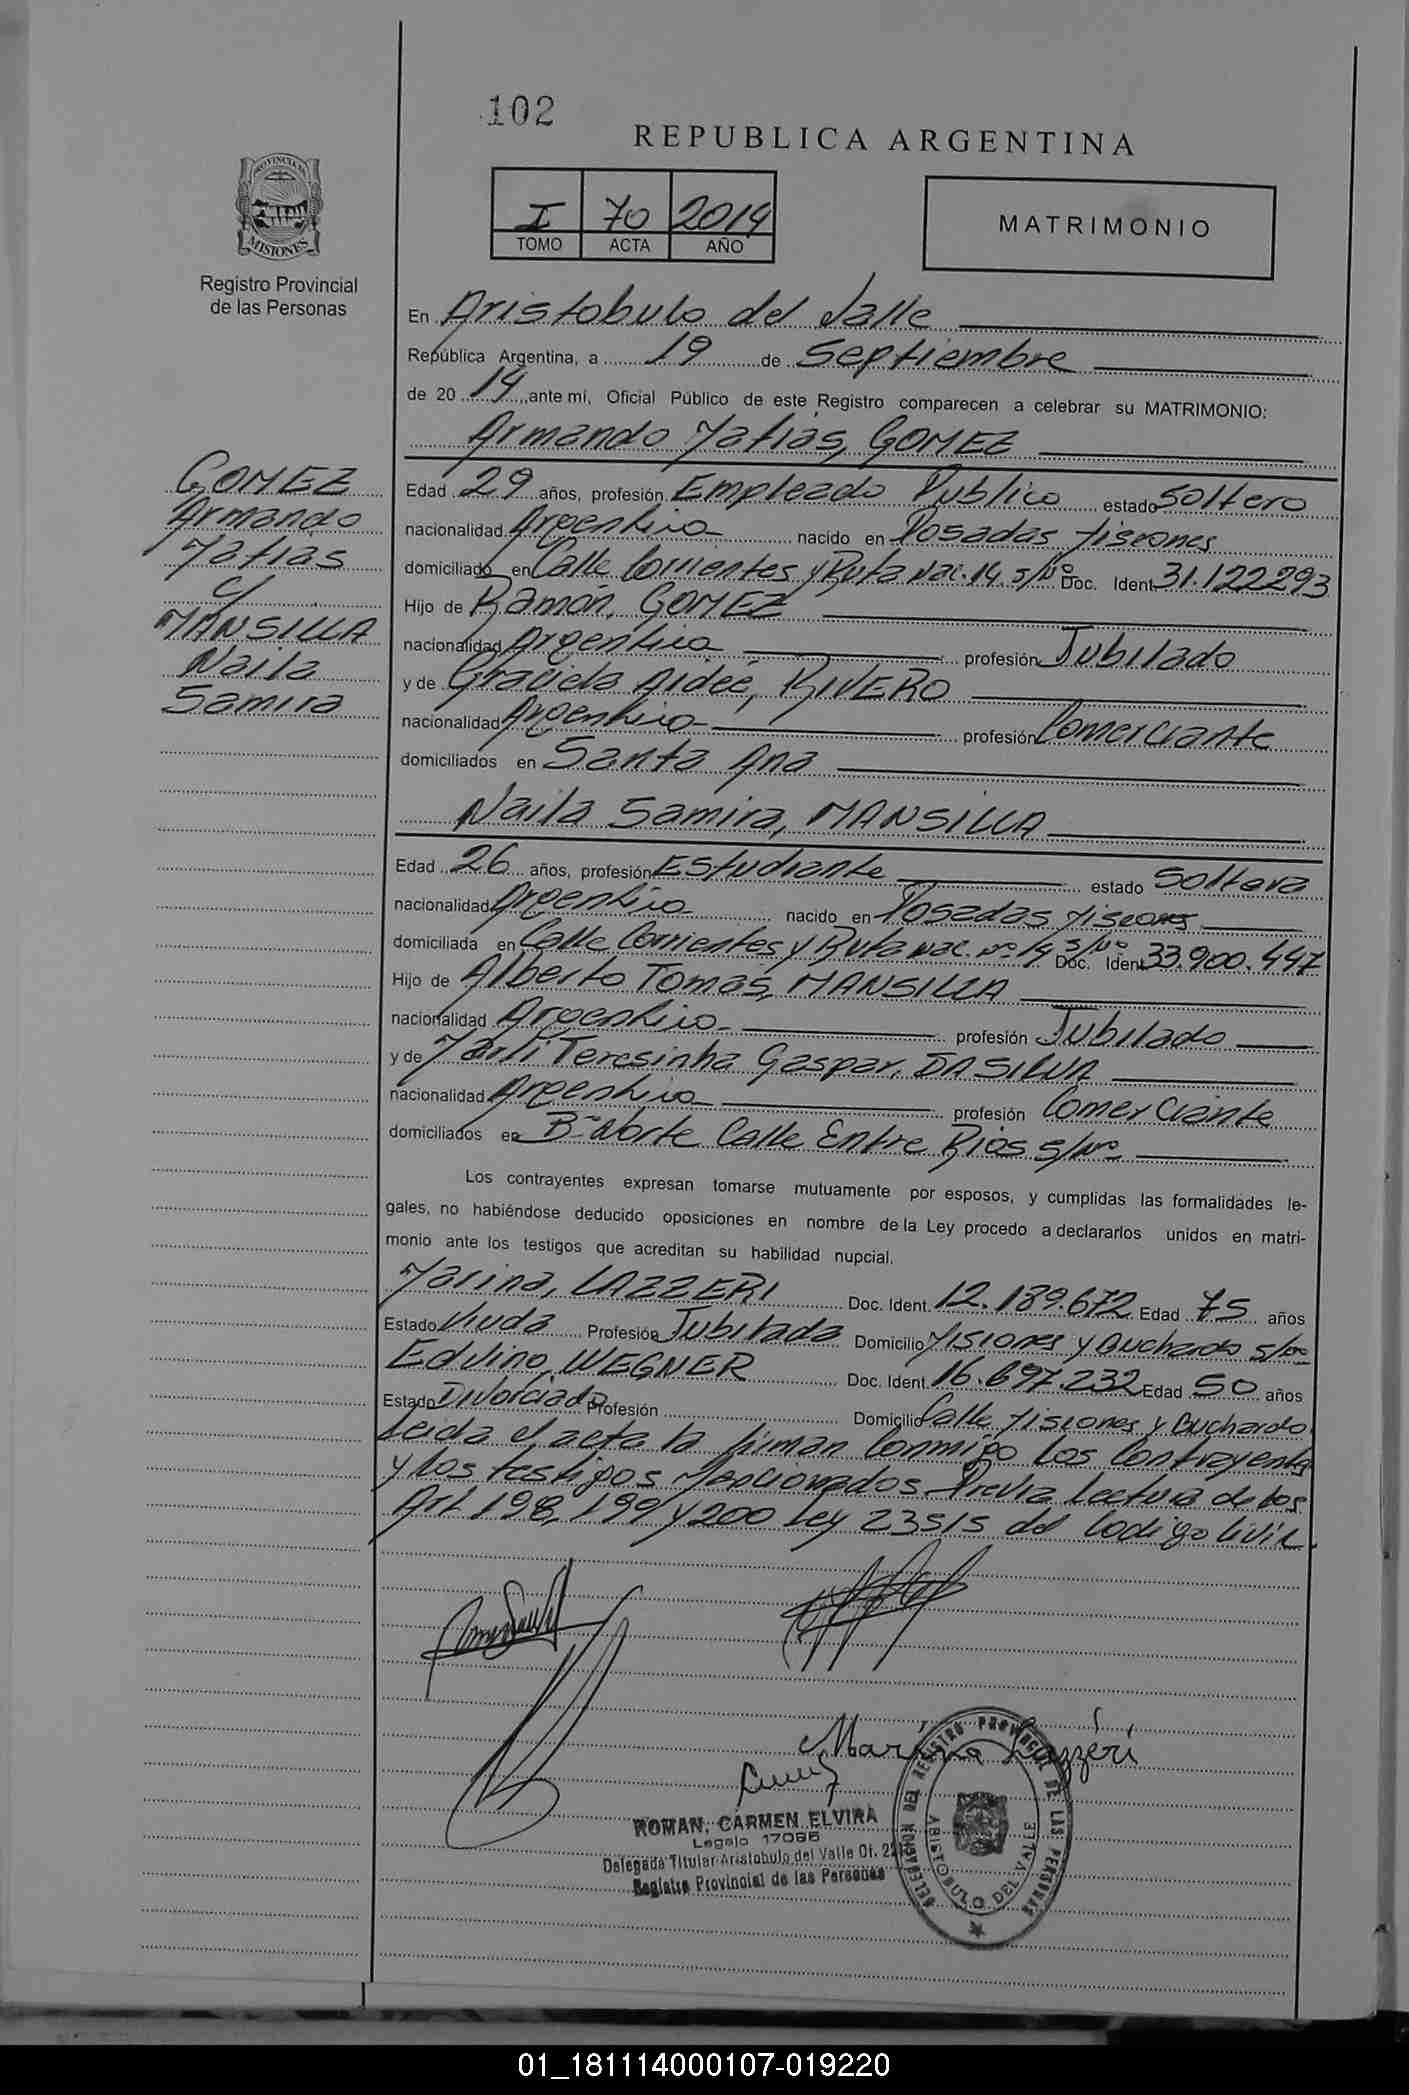 102
REPUBLICA ARGENTINA
PROVINCIA DE
MISIONES
Registro Provincial
de las Personas
I 70 2014
TOMO ACTA AÑO
MATRIMONIO
En Aristobulo del Valle
República Argentina, a 19 de Septiembre
de 20 14 ante mi, Oficial Público de este Registro comparecen a celebrar su MATRIMONIO:
Armando Matias, GOMEZ
GOMEZ
Armando
Matias
c/
MANSILLA
Naila
Samira
Edad 29 años, profesión Empleado Publico estado Soltero
nacionalidad Argentino nacido en Posadas Misiones
domiciliado en Calle Corrientes y Ruta Nac. 14 s/Nº Doc. Ident. 31.122.293
Hijo de Ramón, GOMEZ
nacionalidad Argentina profesión Jubilado
y de Graciela Aideé, RIVERO
nacionalidad Argentina profesión Comerciante
domiciliados en Santa Ana
Naila Samira, MANSILLA
Edad 26 años, profesión Estudiante estado Soltera
nacionalidad Argentina nacido en Posadas Misiones
domiciliada en Calle Corrientes y Ruta Nac. Nº 14 s/Nº Doc. Ident. 33.900.447
Hijo de Alberto Tomás, MANSILLA
nacionalidad Argentina profesión Jubilado
y de Marli Teresinha Gaspar, DA SILVA
nacionalidad Argentina profesión Comerciante
domiciliados en Bº Norte Calle Entre Rios s/Nº
Los contrayentes expresan tomarse mutuamente por esposos, y cumplidas las formalidades le-
gales, no habiéndose deducido oposiciones en nombre de la Ley procedo a declararlos unidos en matri-
monio ante los testigos que acreditan su habilidad nupcial.
Marina, LAZZERI Doc. Ident. 12.189.672 Edad 75 años
Estado Viuda Profesión Jubilada Domicilio Misiones y Buchardo s/nº
Edvino, WEGNER Doc. Ident. 16.697.232 Edad 50 años
Estado Divorciado Profesión Domicilio Calle Misiones y Buchardo
Leida el acta la firman Conmigo los Contrayentes
y los testigos Mencionados. Previa lectura de los
Art 198, 199 y 200 Ley 23515 del Codigo Civil.
Marina Lazzéri
ROMAN, CARMEN ELVIRA
Legajo 17066
Delegada Titular Aristobulo del Valle Of.
Registro Provincial de las Personas
DELEGACION DEL REGISTRO PROVINCIAL DE LAS PERSONAS
ARISTOBULO DEL VALLE
01_181114000107-019220